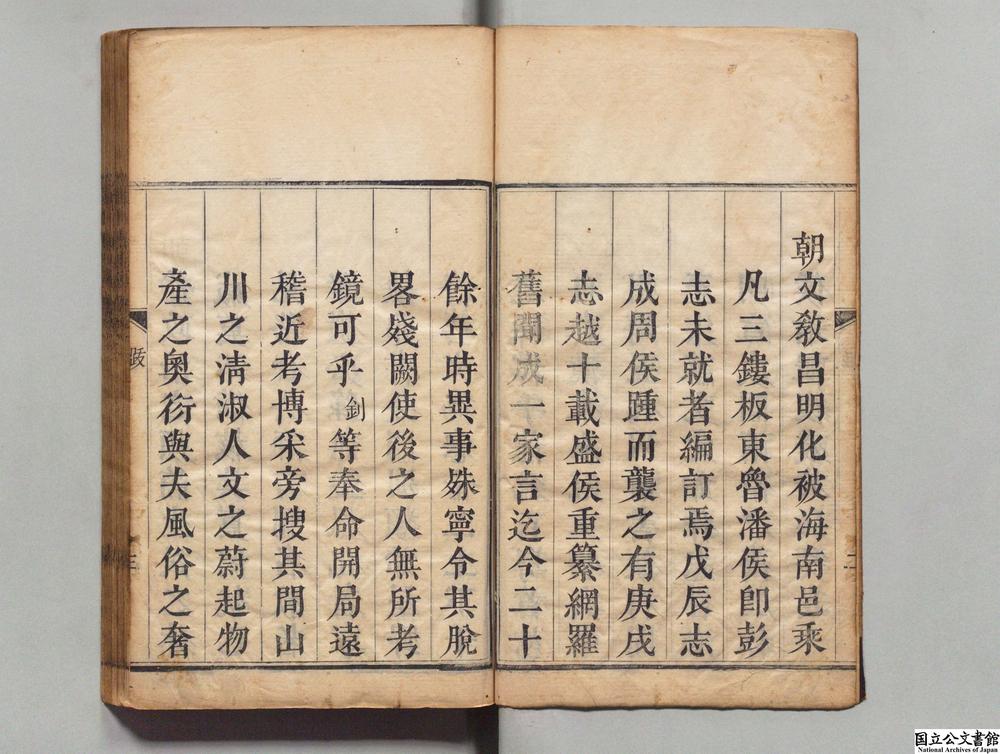 朝文敎昌明化被海南邑乘
凡三鏤板東魯潘侯卽彭
志未就者編訂焉戊辰志
成周侯踵而襲之有庚戌
志越十載盛侯重纂網羅
舊聞成一家言迄今二十
餘年時異事姝寧令其脫
畧殘闕使後之人無所考
鏡可乎釗等奉命開局遠
稽近考博采旁搜其間山
川之淸淑人文之蔚起物
產之奧衍與夫風俗之奢
跋
二
三
国立公文書館
National Archives of Japan